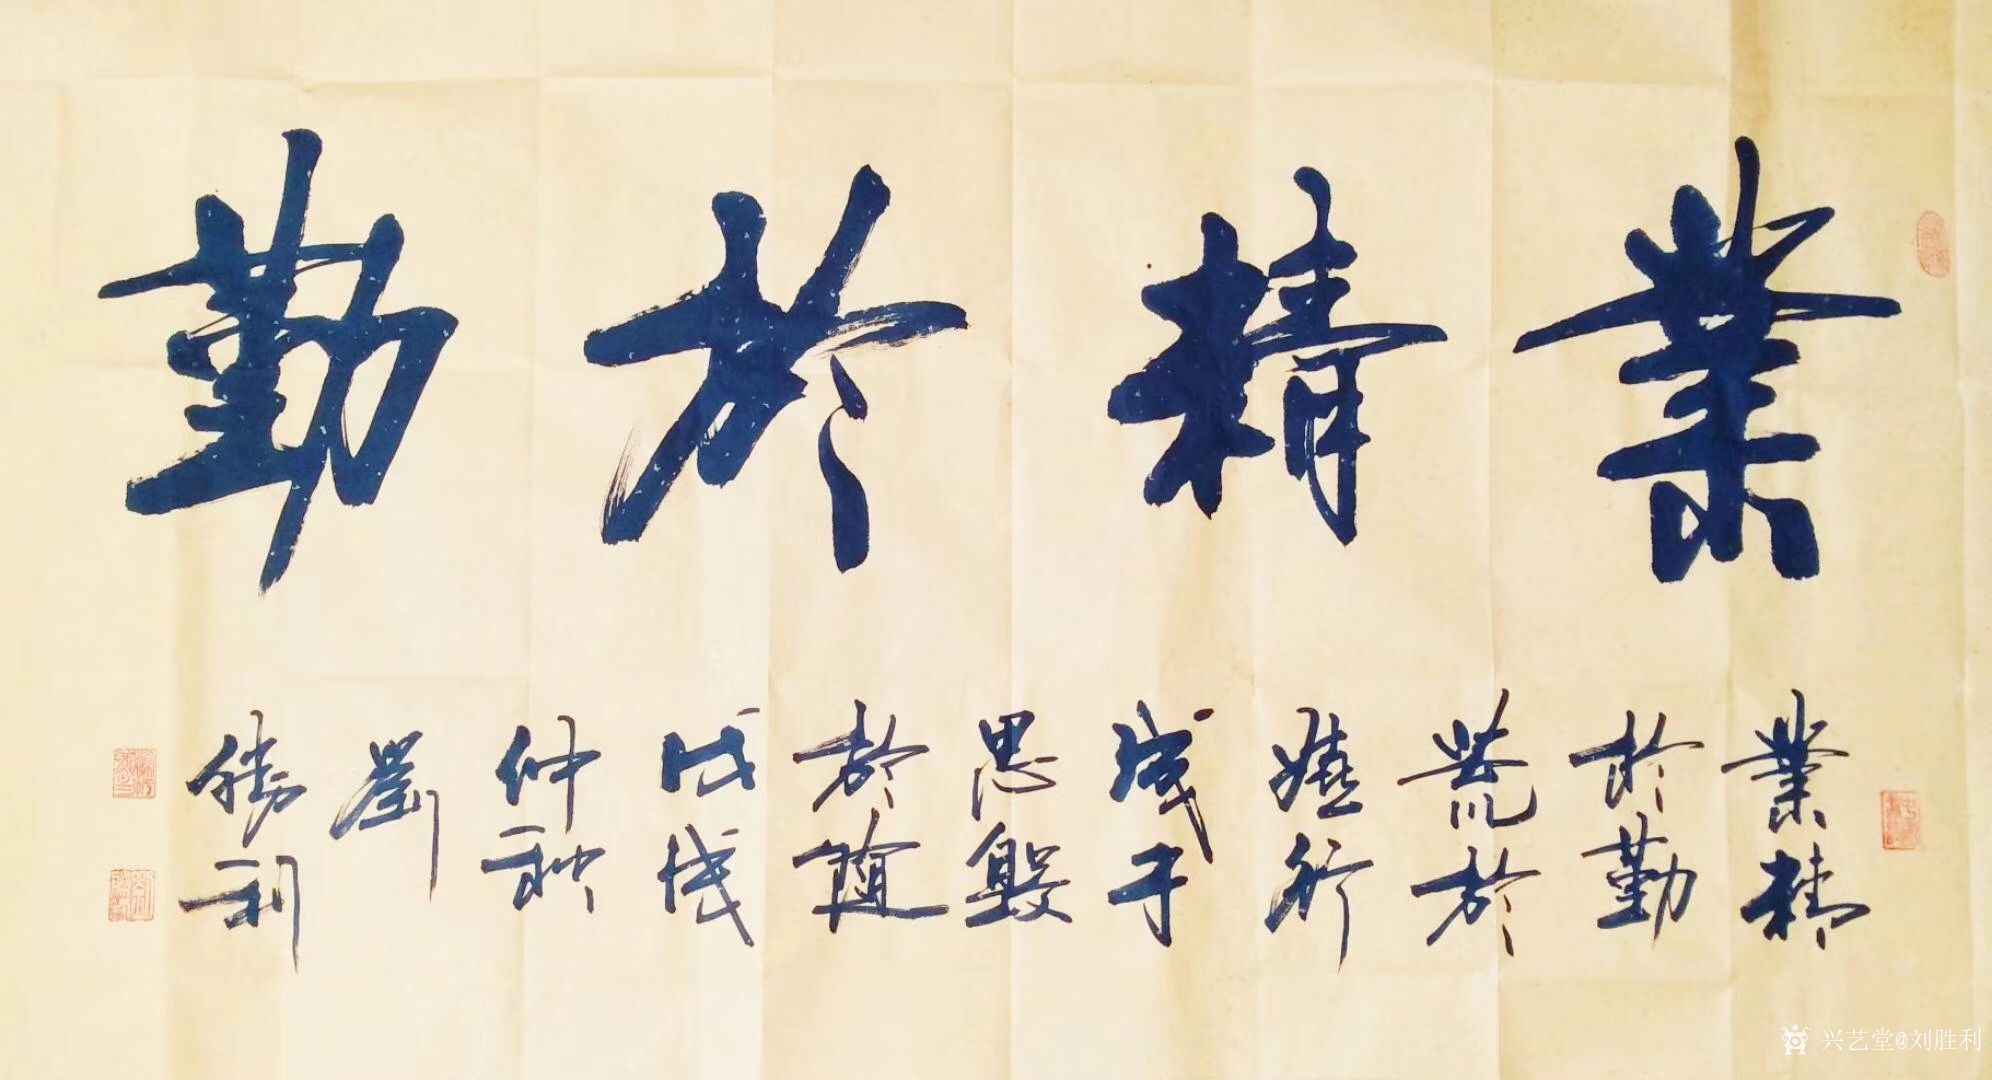 業精於勤
業精
於勤
荒於
嬉行
成于
思毀
於随
戊戌
仲秋
劉
勝利
兴艺堂@刘胜利